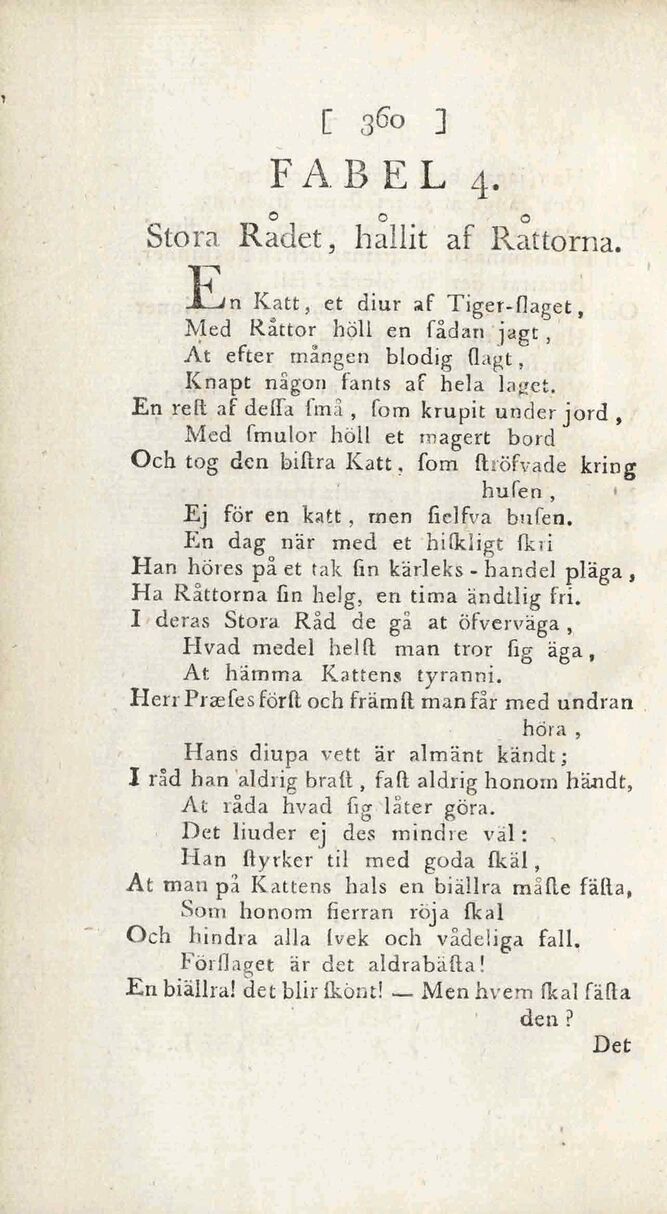 [ 360 ]
FABEL 4.
Stora Rådet, hållit af Råttorna.
En Katt, et diur af Tiger-ſlaget,
Med Råttor höll en ſådan jagt,
At efter mången blodig ſlagt,
Knapt någon fants af hela laget.
En reſt af deſſa ſmå, ſom krupit under jord,
Med ſmulor höll et magert bord
Och tog den biſtra Katt, ſom ſtröfvade kring
huſen,
Ej för en katt, men ſielfva buſen.
En dag när med et hiſkligt ſkri
Han höres på et tak ſin kärleks-handel pläga,
Ha Råttorna ſin helg, en tima ändtlig fri.
I deras Stora Råd de gå at öfverväga,
Hvad medel helſt man tror ſig äga,
At hämma Kattens tyranni.
Herr Præſes förſt och främſt man får med undran
höra,
Hans diupa vett är almänt kändt;
I råd han aldrig braſt, faſt aldrig honom händt,
At råda hvad ſig låter göra.
Det liuder ej des mindre väl:
Han ſtyrker til med goda ſkäl,
At man på Kattens hals en biällra måſte fäſta,
Som honom fierran röja ſkal
Och hindra alla ſvek och vådeliga fall.
Förſlaget är det aldrabäſta!
En biällra! det blir ſkönt! — Men hvem ſkal fäſta
den?
Det